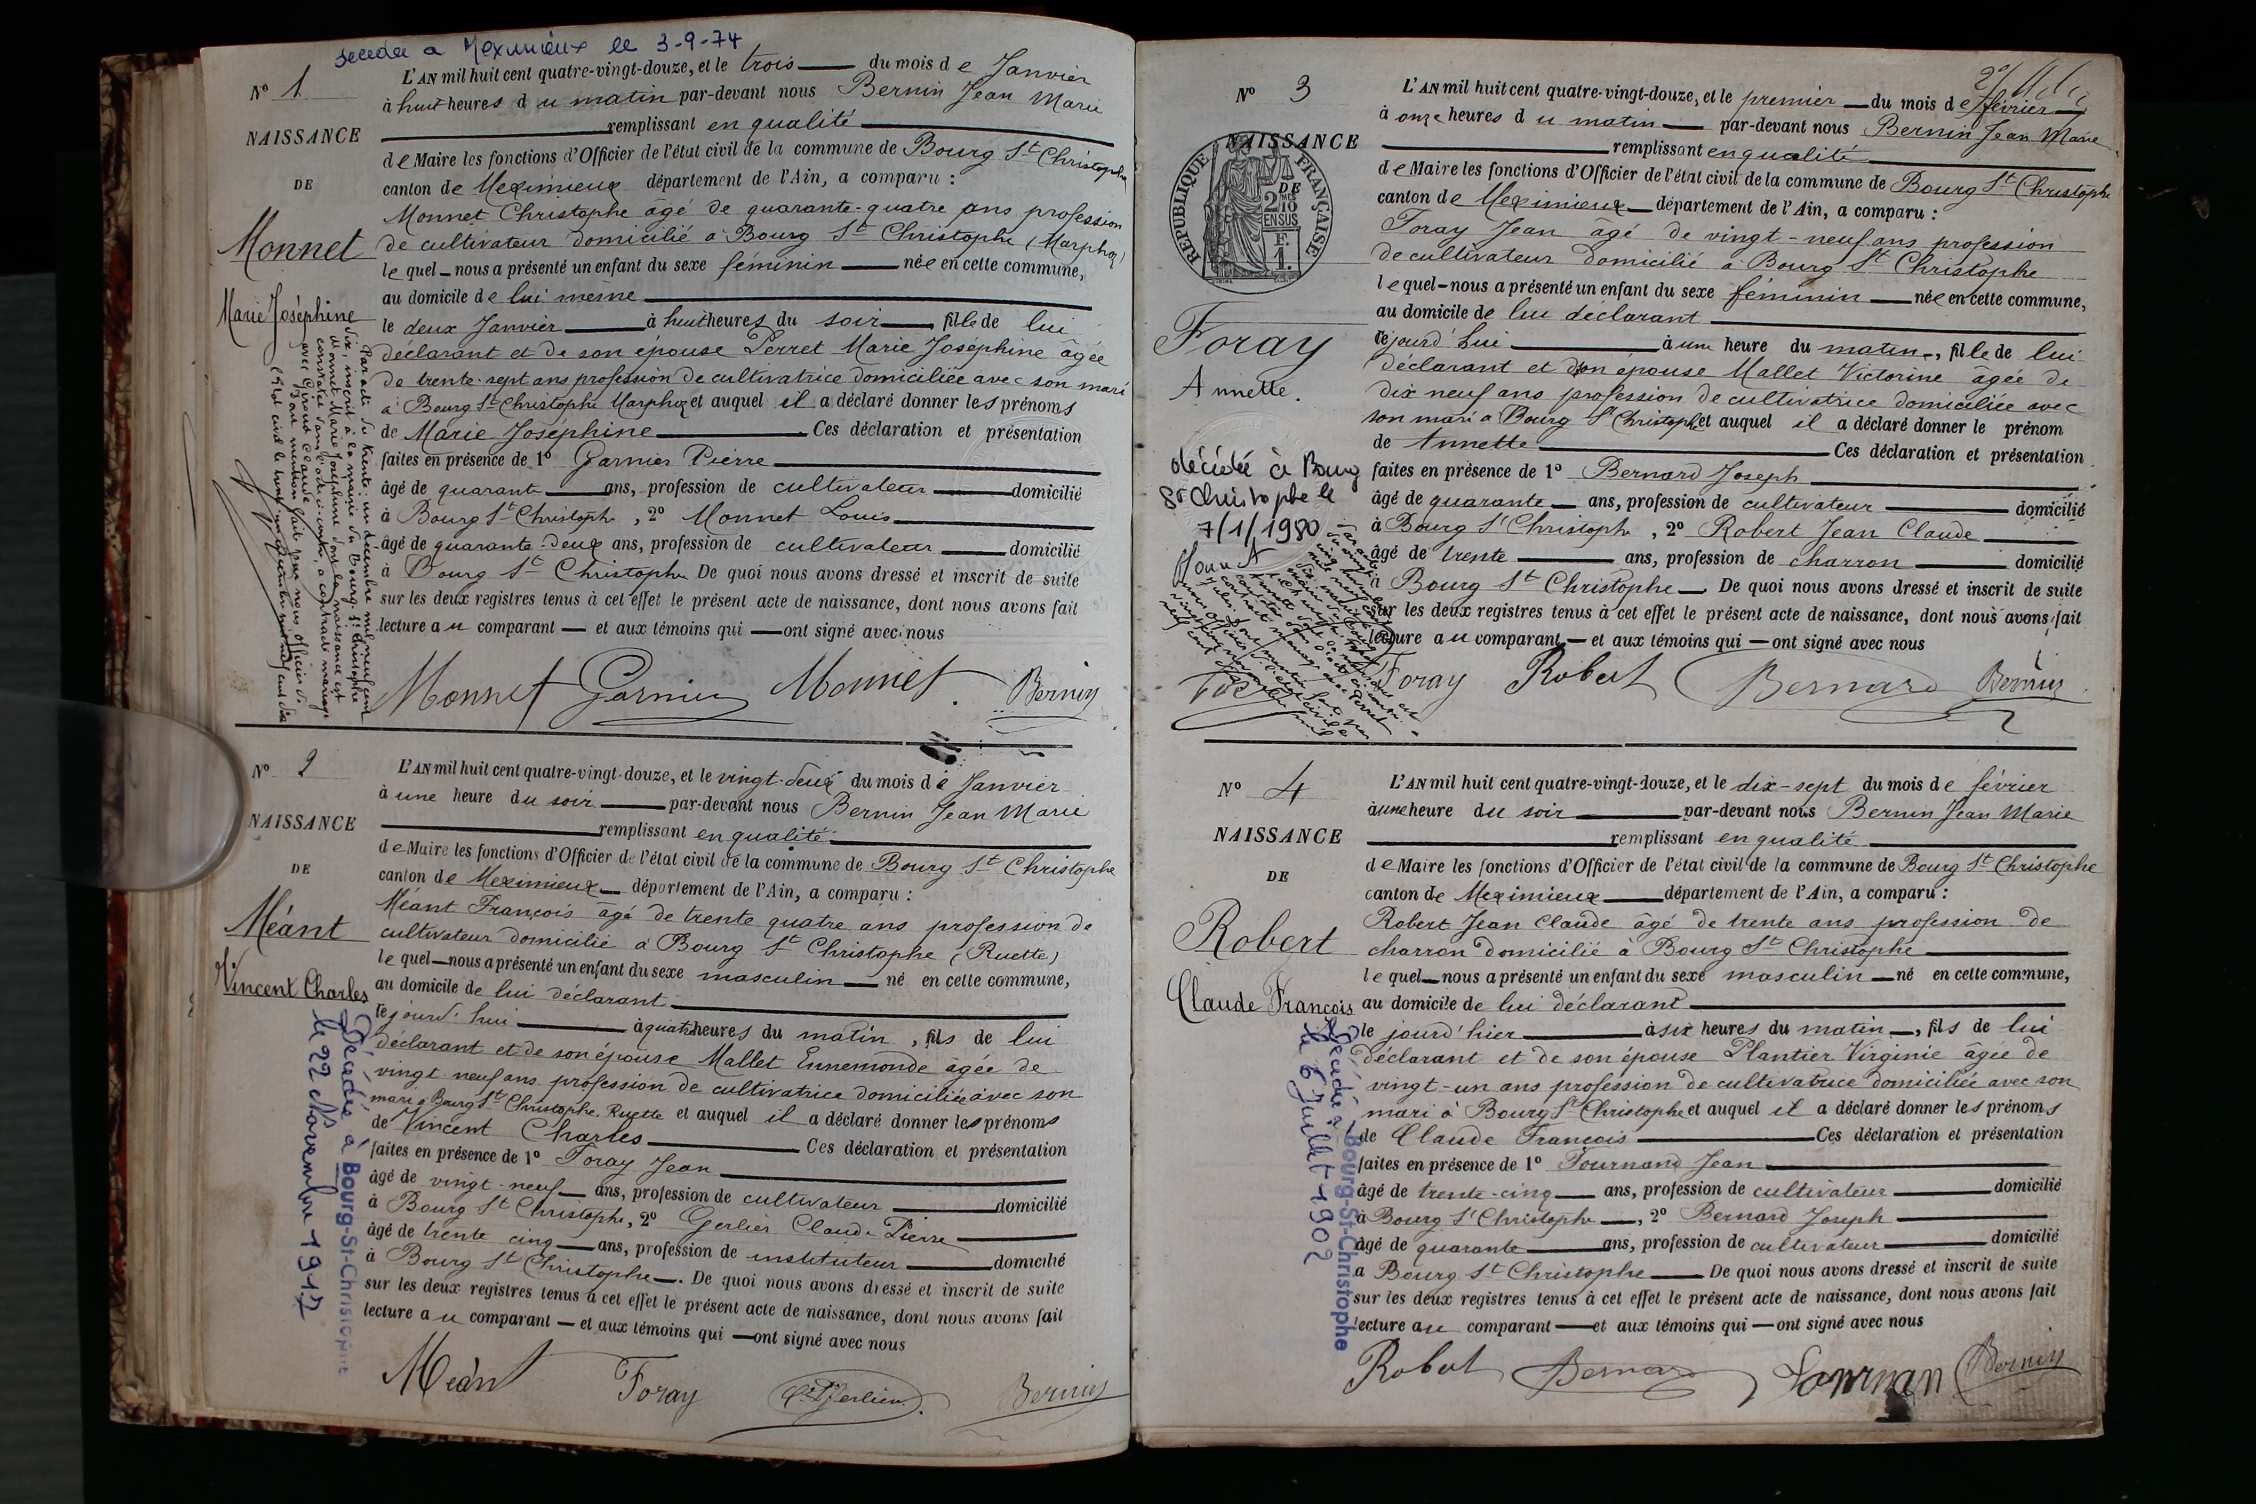 décédée à Meximieux le 3-9-74
N° 1
NAISSANCE
DE
Monnet
Marie Joséphine
L'AN mil huit cent quatre-vingt-douze, et le trois du mois de Janvier
à huit heures du matin par-devant nous Bernin Jean Marie
remplissant en qualité
de Maire les fonctions d'Officier de l'état civil de la commune de Bourg St Christophe
canton de Meximieux département de l'Ain, a comparu :
Monnet Christophe âgé de quarante-quatre ans profession
de cultivateur domicilié à Bourg St Christophe (Marphoz)
lequel nous a présenté un enfant du sexe féminin née en cette commune,
au domicile de lui même
le deux Janvier à huit heures du soir, fille de lui
déclarant et de son épouse Perret Marie Joséphine âgée
de trente-sept ans profession de cultivatrice domiciliée avec son mari
à Bourg St Christophe Marphoz et auquel il a déclaré donner les prénoms
de Marie Joséphine Ces déclaration et présentation
faites en présence de 1° Garnier Pierre
âgé de quarante ans, profession de cultivateur domicilié
à Bourg St Christophe, 2° Monnet Louis
âgé de quarante-deux ans, profession de cultivateur domicilié
à Bourg St Christophe De quoi nous avons dressé et inscrit de suite
sur les deux registres tenus à cet effet le présent acte de naissance, dont nous avons fait
lecture au comparant et aux témoins qui ont signé avec nous
Par acte du trente-un décembre mil neuf cent
dix, inscrit à la mairie du Bourg-St-Christophe
Monnet Marie Joséphine dont la naissance est
constatée dans l'acte ci-contre, a contracté mariage
avec Giroud Claude
Dont mention faite par nous officier de
l'état civil le trente-un décembre mil neuf cent dix
Monnet Garnier Monnet Bernin
N° 2
NAISSANCE
DE
Méant
Vincent Charles
L'AN mil huit cent quatre-vingt-douze, et le vingt-deux du mois de Janvier
à une heure du soir par-devant nous Bernin Jean Marie
remplissant en qualité
de Maire les fonctions d'Officier de l'état civil de la commune de Bourg St Christophe
canton de Meximieux département de l'Ain, a comparu :
Méant François âgé de trente quatre ans profession de
cultivateur domicilié à Bourg St Christophe (Ruette)
lequel nous a présenté un enfant du sexe masculin né en cette commune,
au domicile de lui déclarant
cejourd'hui à quatre heures du matin, fils de lui
déclarant et de son épouse Mallet Ennemonde âgée de
vingt neuf ans profession de cultivatrice domiciliée avec son
mari à Bourg St Christophe. Ruette et auquel il a déclaré donner les prénoms
de Vincent Charles Ces déclaration et présentation
faites en présence de 1° Foray Jean
âgé de vingt-neuf ans, profession de cultivateur domicilié
à Bourg St Christophe, 2° Gerlier Claude Pierre
âgé de trente cinq ans, profession de instituteur domicilié
à Bourg St Christophe. De quoi nous avons dressé et inscrit de suite
sur les deux registres tenus à cet effet le présent acte de naissance, dont nous avons fait
lecture au comparant et aux témoins qui ont signé avec nous
Décédé à Bourg-St-Christophe
le 22 Novembre 1917
Méant Foray Gerlier Bernin
N° 3
NAISSANCE
RÉPUBLIQUE FRANÇAISE
DE
2 MES 10
EN SUS
F.
1.
Foray
Annette.
L'AN mil huit cent quatre-vingt-douze, et le premier du mois de février
à onze heures du matin par-devant nous Bernin Jean Marie
remplissant en qualité
de Maire les fonctions d'Officier de l'état civil de la commune de Bourg St Christophe
canton de Meximieux département de l'Ain, a comparu :
Foray Jean âgé de vingt-neuf ans profession
de cultivateur domicilié à Bourg St Christophe
lequel nous a présenté un enfant du sexe féminin née en cette commune,
au domicile de lui déclarant
cejourd'hui à une heure du matin, fille de lui
déclarant et d son épouse Mallet Victorine âgée de
dix neuf ans profession de cultivatrice domiciliée avec
son mari à Bourg St Christophe et auquel il a déclaré donner le prénom
de Annette Ces déclaration et présentation
faites en présence de 1° Bernard Joseph
âgé de quarante ans, profession de cultivateur domicilié
à Bourg St Christophe, 2° Robert Jean Claude
âgé de trente ans, profession de charron domicilié
à Bourg St Christophe. De quoi nous avons dressé et inscrit de suite
sur les deux registres tenus à cet effet le présent acte de naissance, dont nous avons fait
lecture au comparant et aux témoins qui ont signé avec nous
décédée à Bourg
St Christophe le
7/1/1980
Foray Robert Bernard Bernin
N° 4
NAISSANCE
DE
Robert
Claude François
L'AN mil huit cent quatre-vingt-douze, et le dix-sept du mois de février
à une heure du soir par-devant nous Bernin Jean Marie
remplissant en qualité
de Maire les fonctions d'Officier de l'état civil de la commune de Bourg St Christophe
canton de Meximieux département de l'Ain, a comparu :
Robert Jean Claude âgé de trente ans profession de
charron domicilié à Bourg St Christophe
lequel nous a présenté un enfant du sexe masculin né en cette commune,
au domicile de lui déclarant
le jourd'hier à six heures du matin, fils de lui
déclarant et de son épouse Plantier Virginie âgée de
vingt-un ans profession de cultivatrice domiciliée avec son
mari à Bourg St Christophe et auquel il a déclaré donner les prénoms
de Claude François Ces déclaration et présentation
faites en présence de 1° Tournand Jean
âgé de trente-cinq ans, profession de cultivateur domicilié
à Bourg St Christophe, 2° Bernard Joseph
âgé de quarante ans, profession de cultivateur domicilié
à Bourg St Christophe De quoi nous avons dressé et inscrit de suite
sur les deux registres tenus à cet effet le présent acte de naissance, dont nous avons fait
lecture au comparant et aux témoins qui ont signé avec nous
Décédé à Bourg-St-Christophe
le 6 Juillet 1902
Robert Bernard Bernin